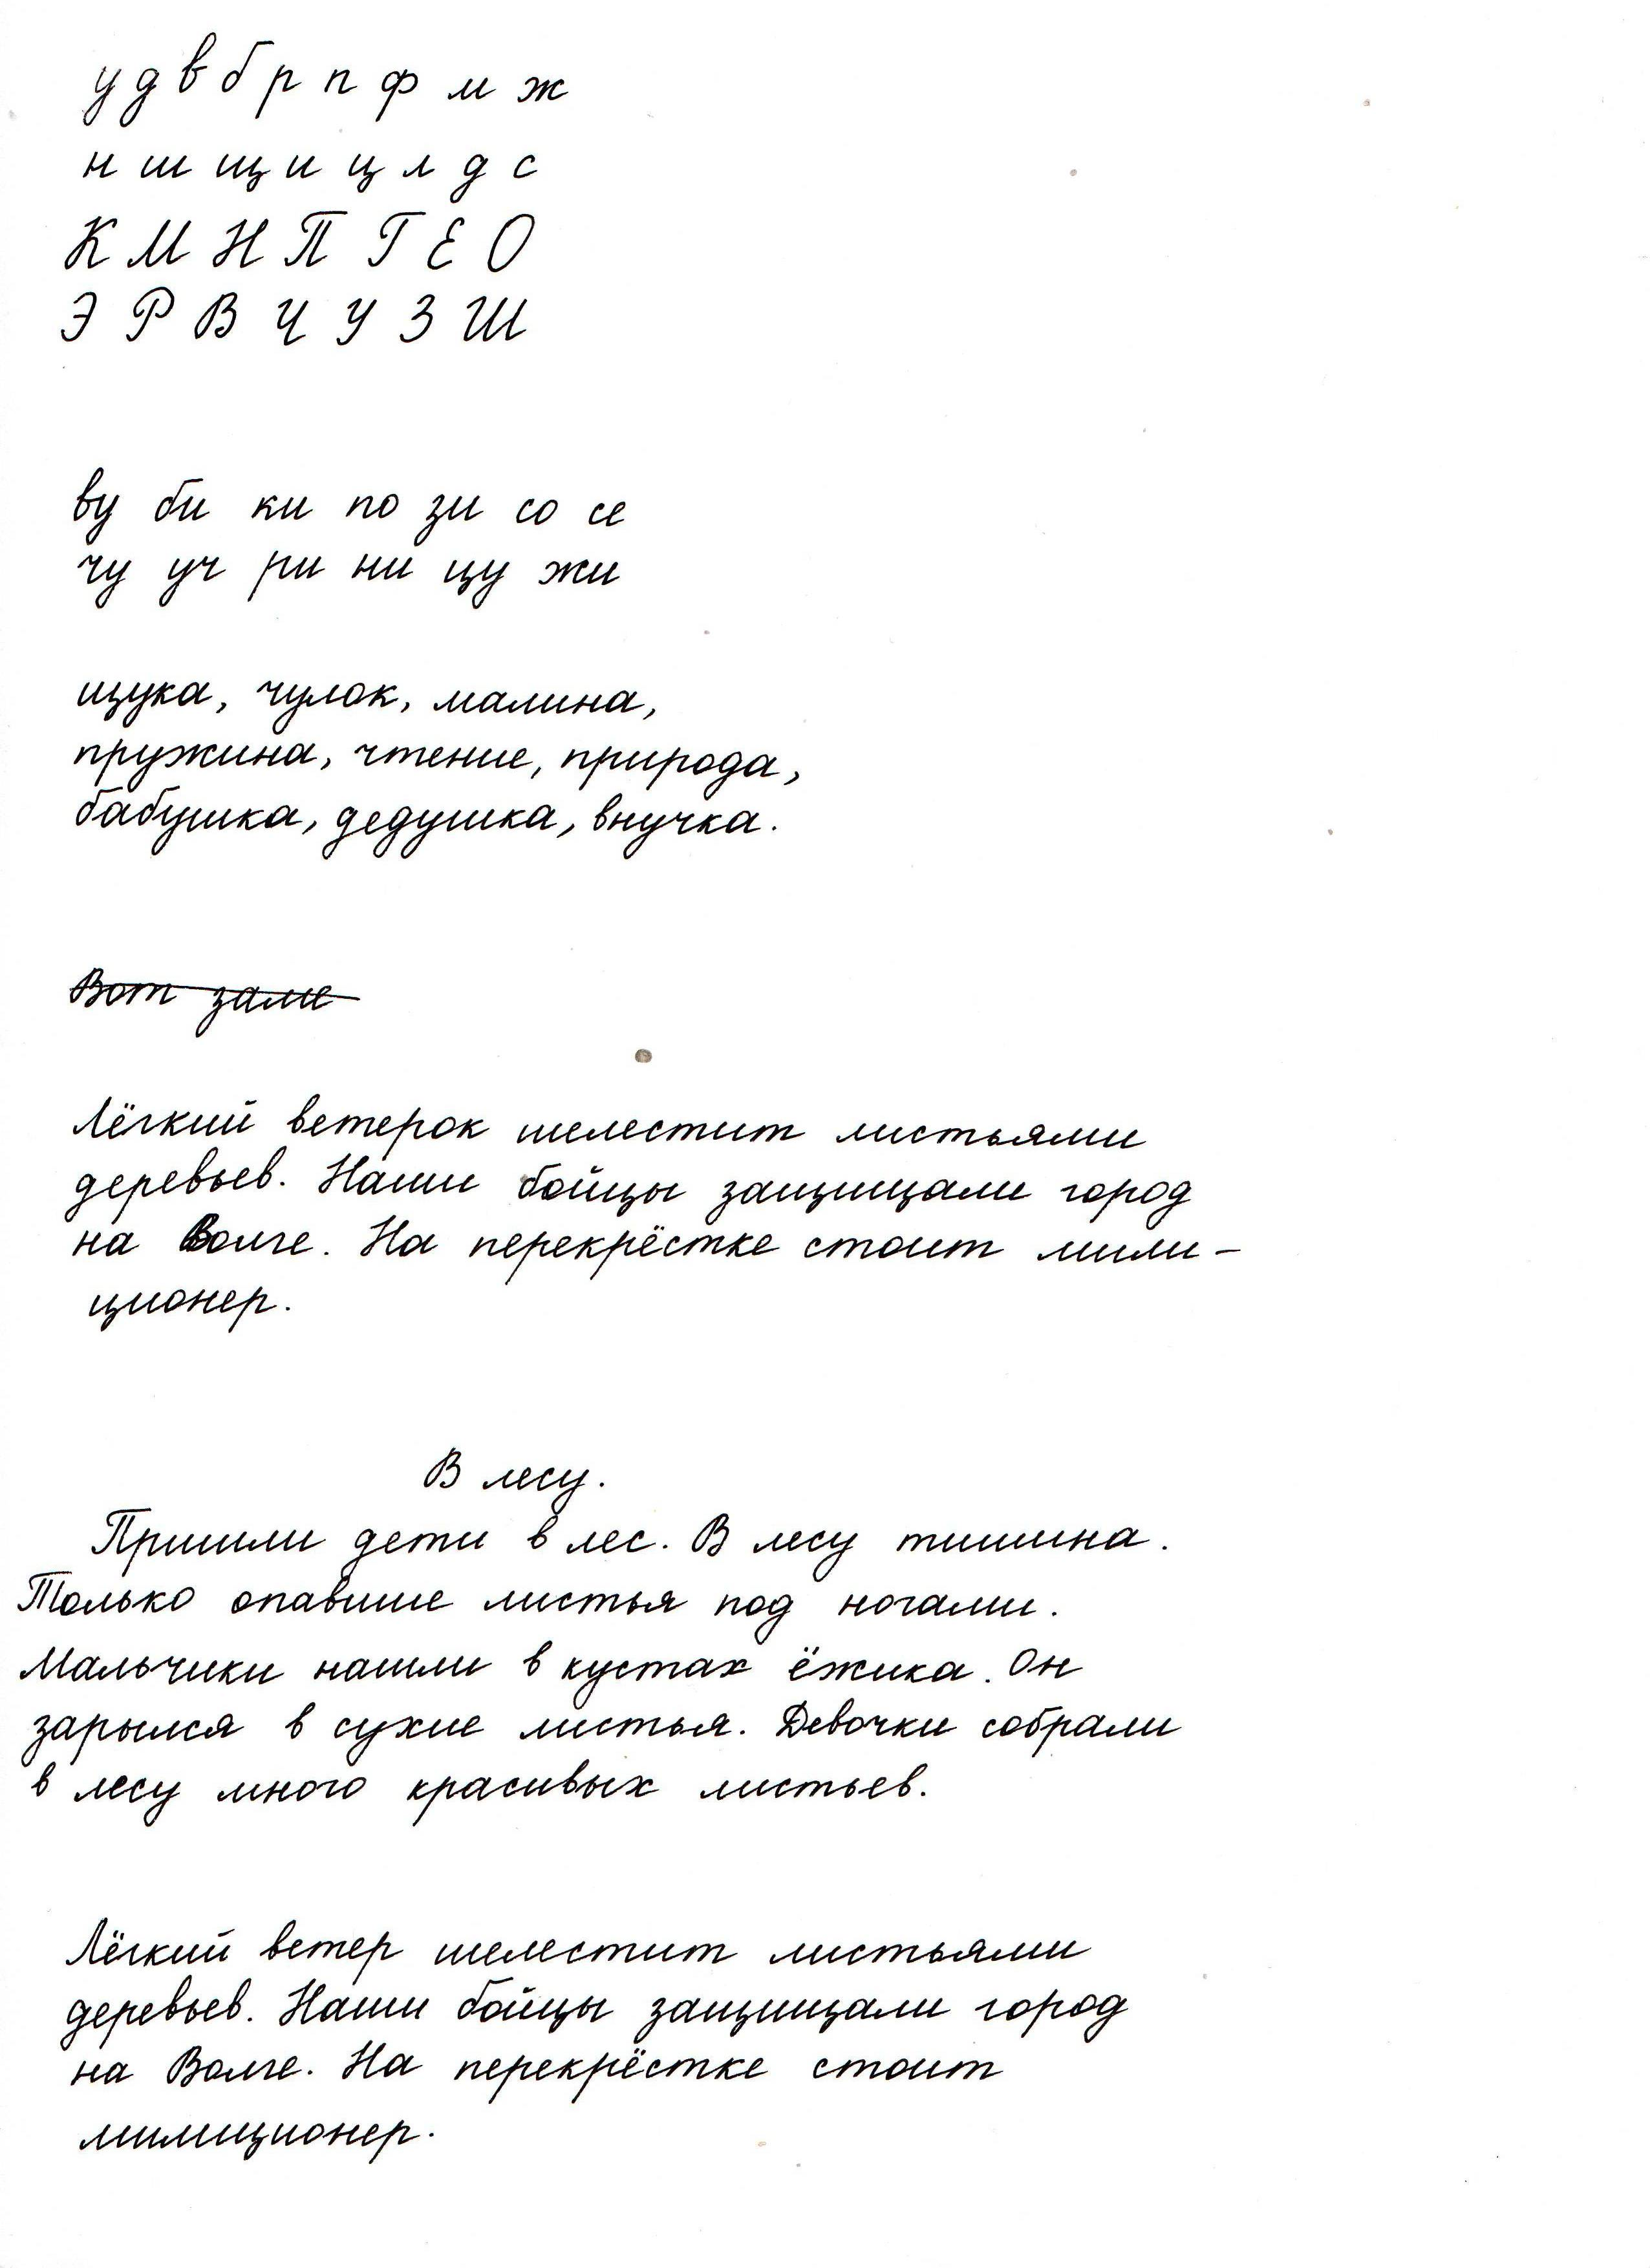 у д в б р п ф м ж
н ш щ и ц л д с
К М Н П Г Е О
Э Р В Ч У З Ш
ву би ки по зи со се
чу уч ри ни цу жи
щука, чулок, малина,
пружина, чтение, природа,
бабушка, дедушка, внучка.
Вот зали
Лёгкий ветерок шелестит листьями
деревьев. Наши бойцы защищали город
на Волге. На перекрёстке стоит мили-
ционер.
В лесу.
Пришли дети в лес. В лесу тишина.
Только опавшие листья под ногами.
Мальчики нашли в кустах ёжика. Он
зарылся в сухие листья. Девочки собрали
в лесу много красивых листьев.
Лёгкий ветер шелестит листьями
деревьев. Наши бойцы защищали город
на Волге. На перекрёстке стоит
милиционер.